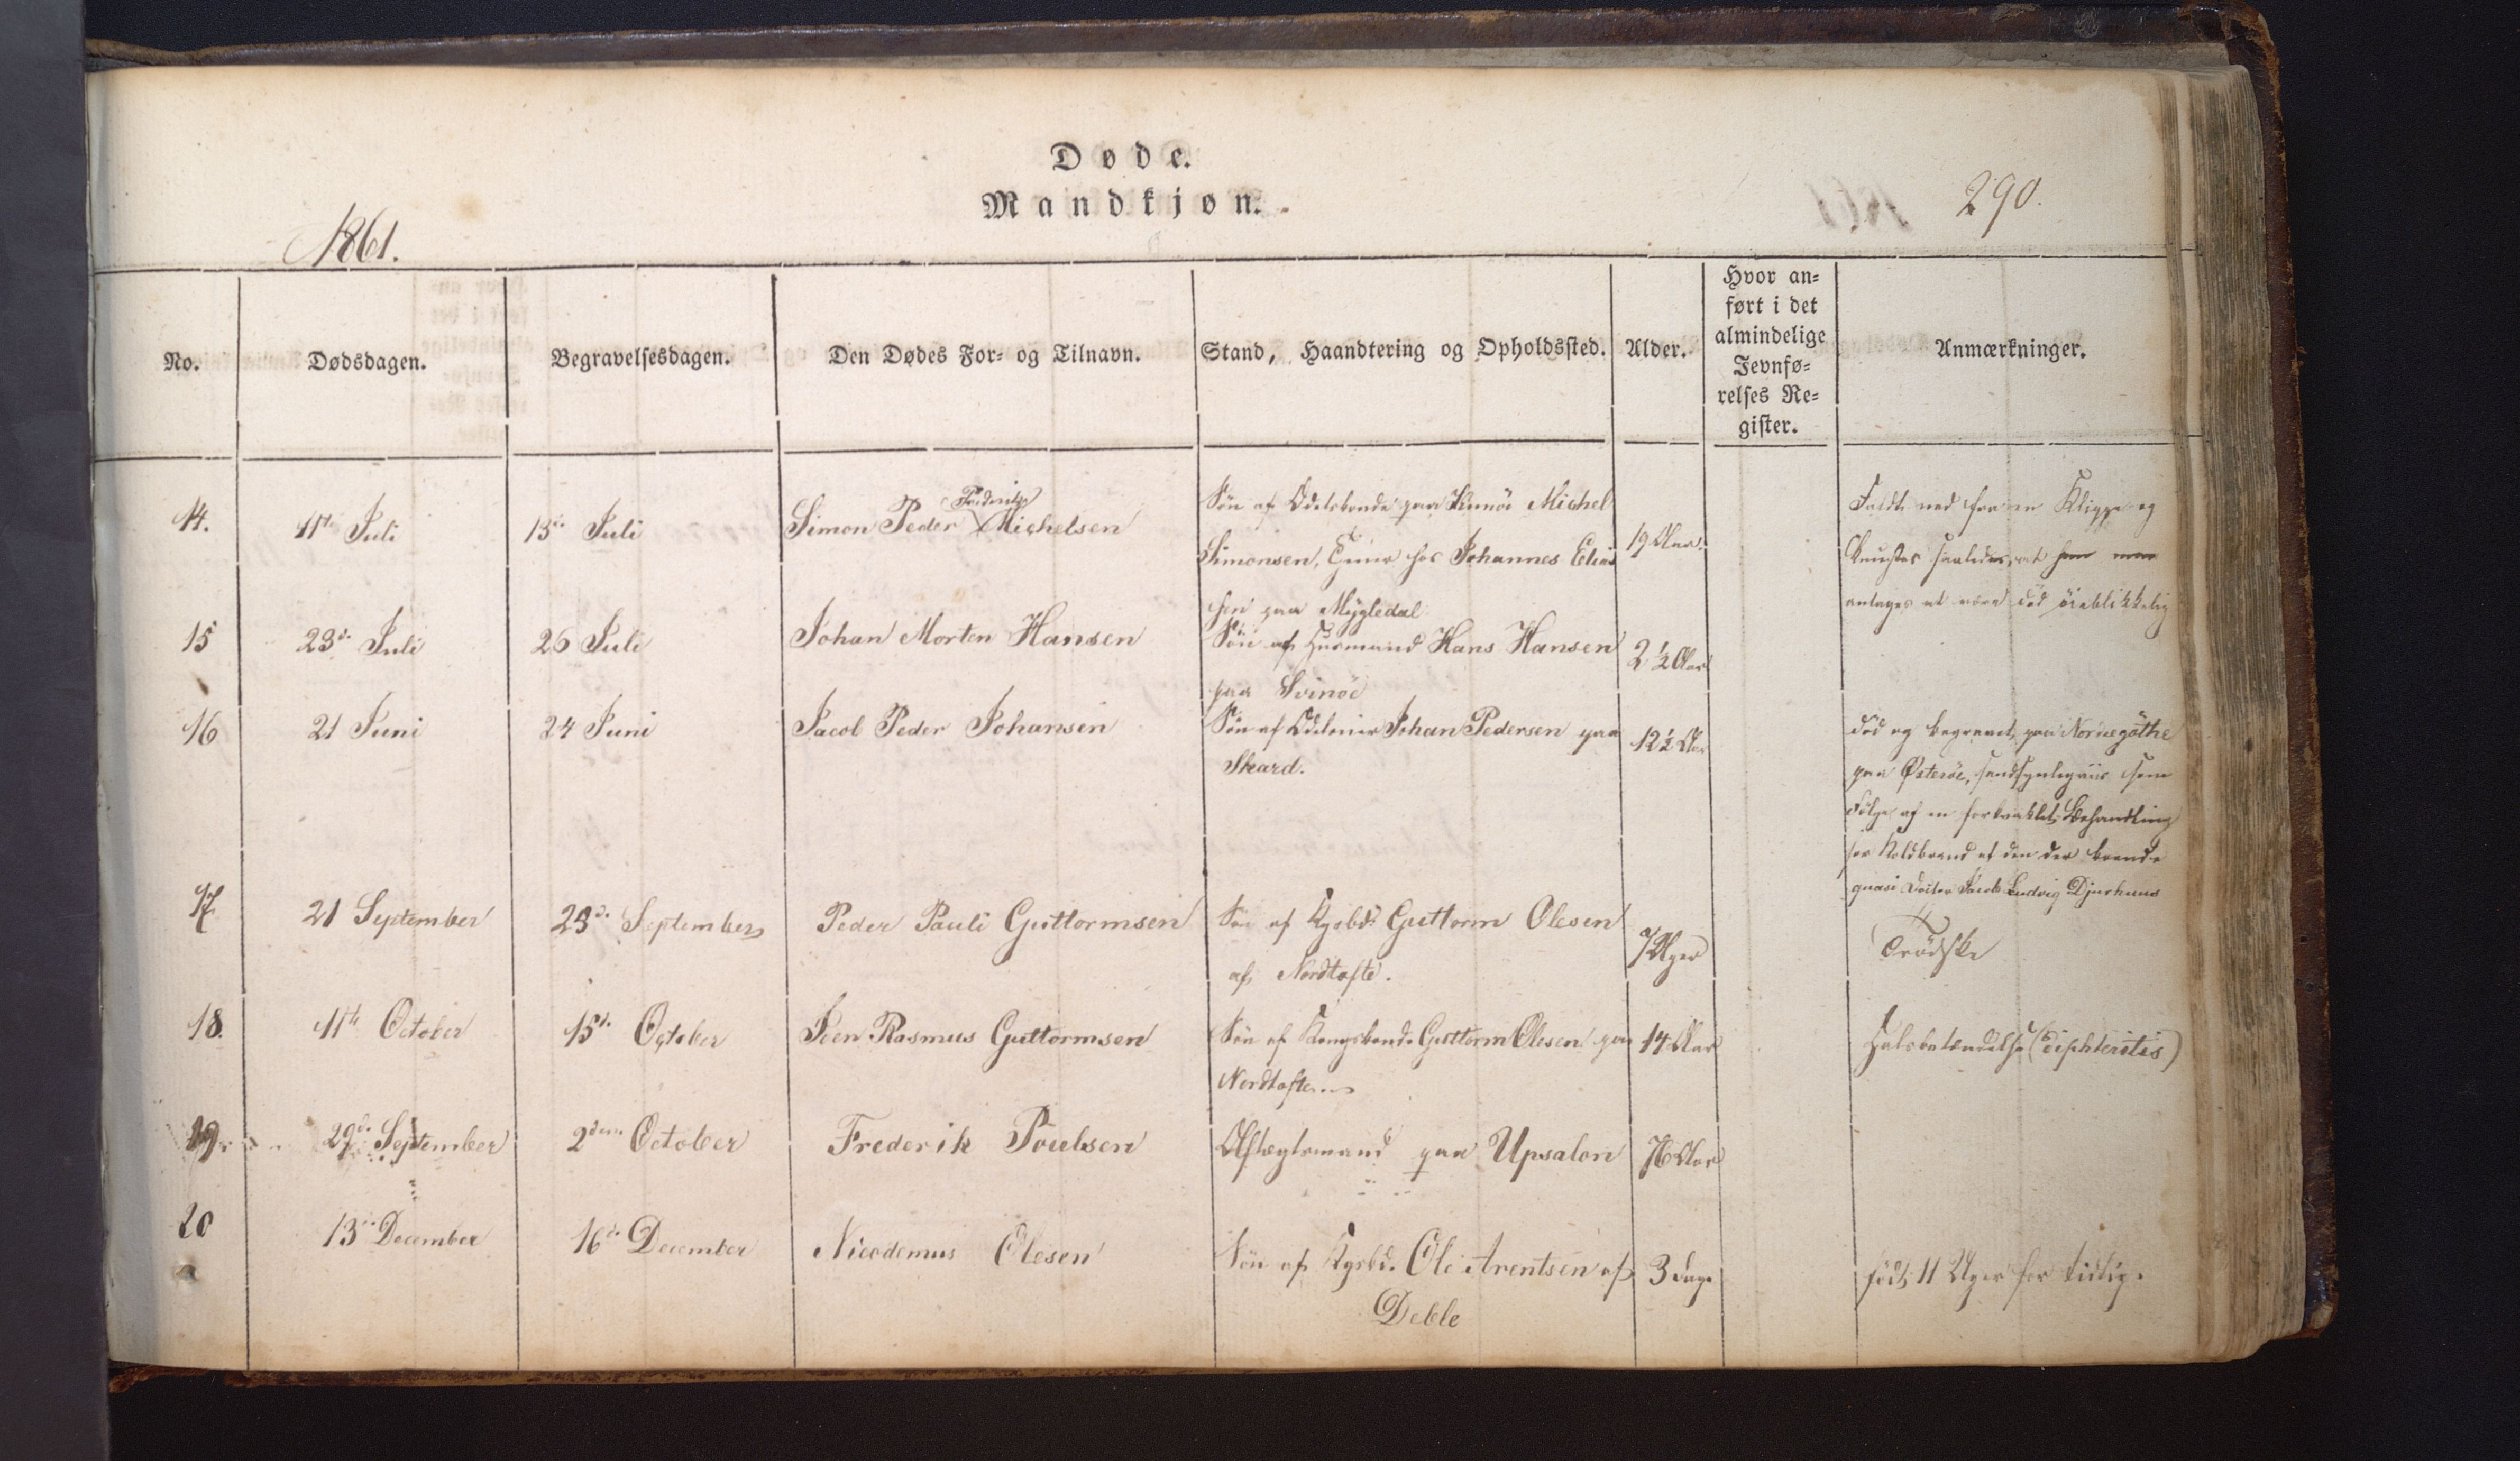 Døde.
Mandkjøn.
290.
1861.
No.
Dødsdagen.
Begravelsesdagen.
Den Dødes For- og Tilnavn.
Stand, Haandtering og Opholdssted.
Alder.
Hvor an-
ført i det
almindelige
Jevnfø-
relses Re-
gister.
Anmærkninger.
14.
11te Juli
15de Juli
Simon Peder Michelsen
Frederik
Søn af Odelsbonde paa Kunöe Michel
Simonsen, hos Johannes Elias
sen paa Mygledal
19 Aar.
Faldt ned fra en Klippe og
knustes saaledes, at
antages at være død öieblikkelig
15
23de Juli
26 Juli
Johan Morten Hansen
Søn af Huusmand Hans Hansen
paa Svinöe
2 1/2 Aar
16
21 Juni
24 Juni
Jacob Peder Johansen
Søn af Odelseier Johan Pedersen paa
Skard.
12 1/2 Aar
död og begravet paa Norregöthe
paa Österöe, sandsynligviis som
Fölge af en forkvaklet Behandling
for Koldbrand af den der boende
quasi Doctor Jacob Ludvig Djurhuus
17
21 September
23de September
Peder Pauli Guttormsen
Søn af Kgsbd. Guttorm Olesen
af Nordtofte.
7 Uger
Trödske
18.
11te October
15de October
Joen Rasmus Guttormsen
Søn af Kongsbonde Guttorm Olesen paa
Nordtofte
14 Aar
Halsbetændelse (diphteritis)
19.
29de September
2den October
Frederik Poulsen
Aftægtsmand paa Upsalen
76 Aar
20
13de December
16de December
Nicodemus Olesen
Søn af Kgsbd. Ole Arentsen af
Deble
3 Dage
födt 11 Uger for tidlig.